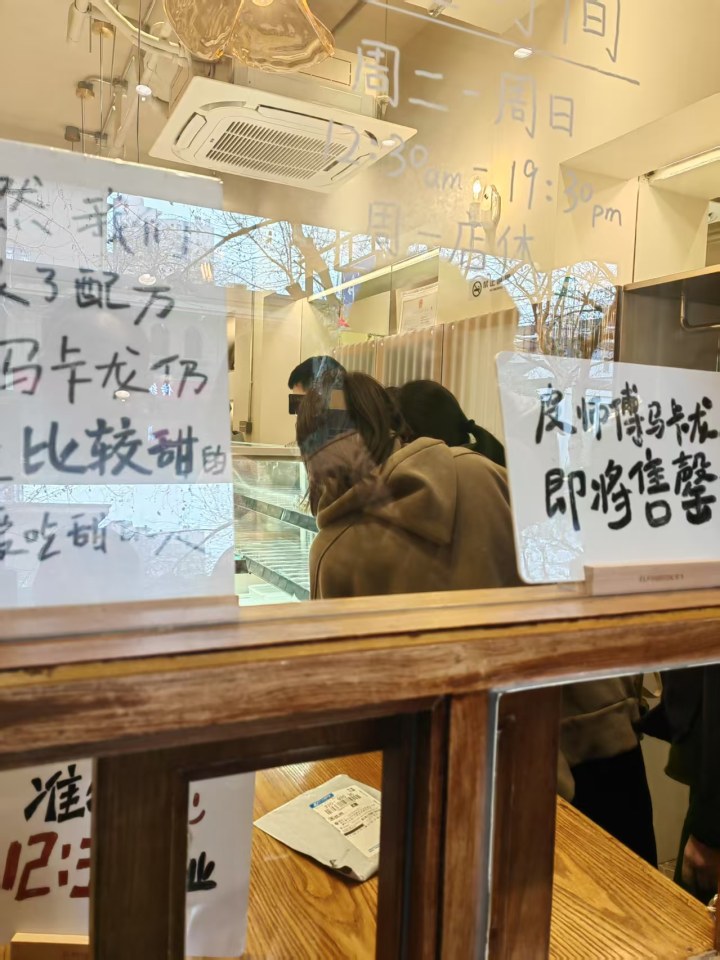 间
周二-周日
12:30am - 19:30pm
周一店休
然我们
了配方
玛卡龙仍
比较甜的
爱吃甜
皮师傅玛卡龙
即将售罄
准
12:3
业